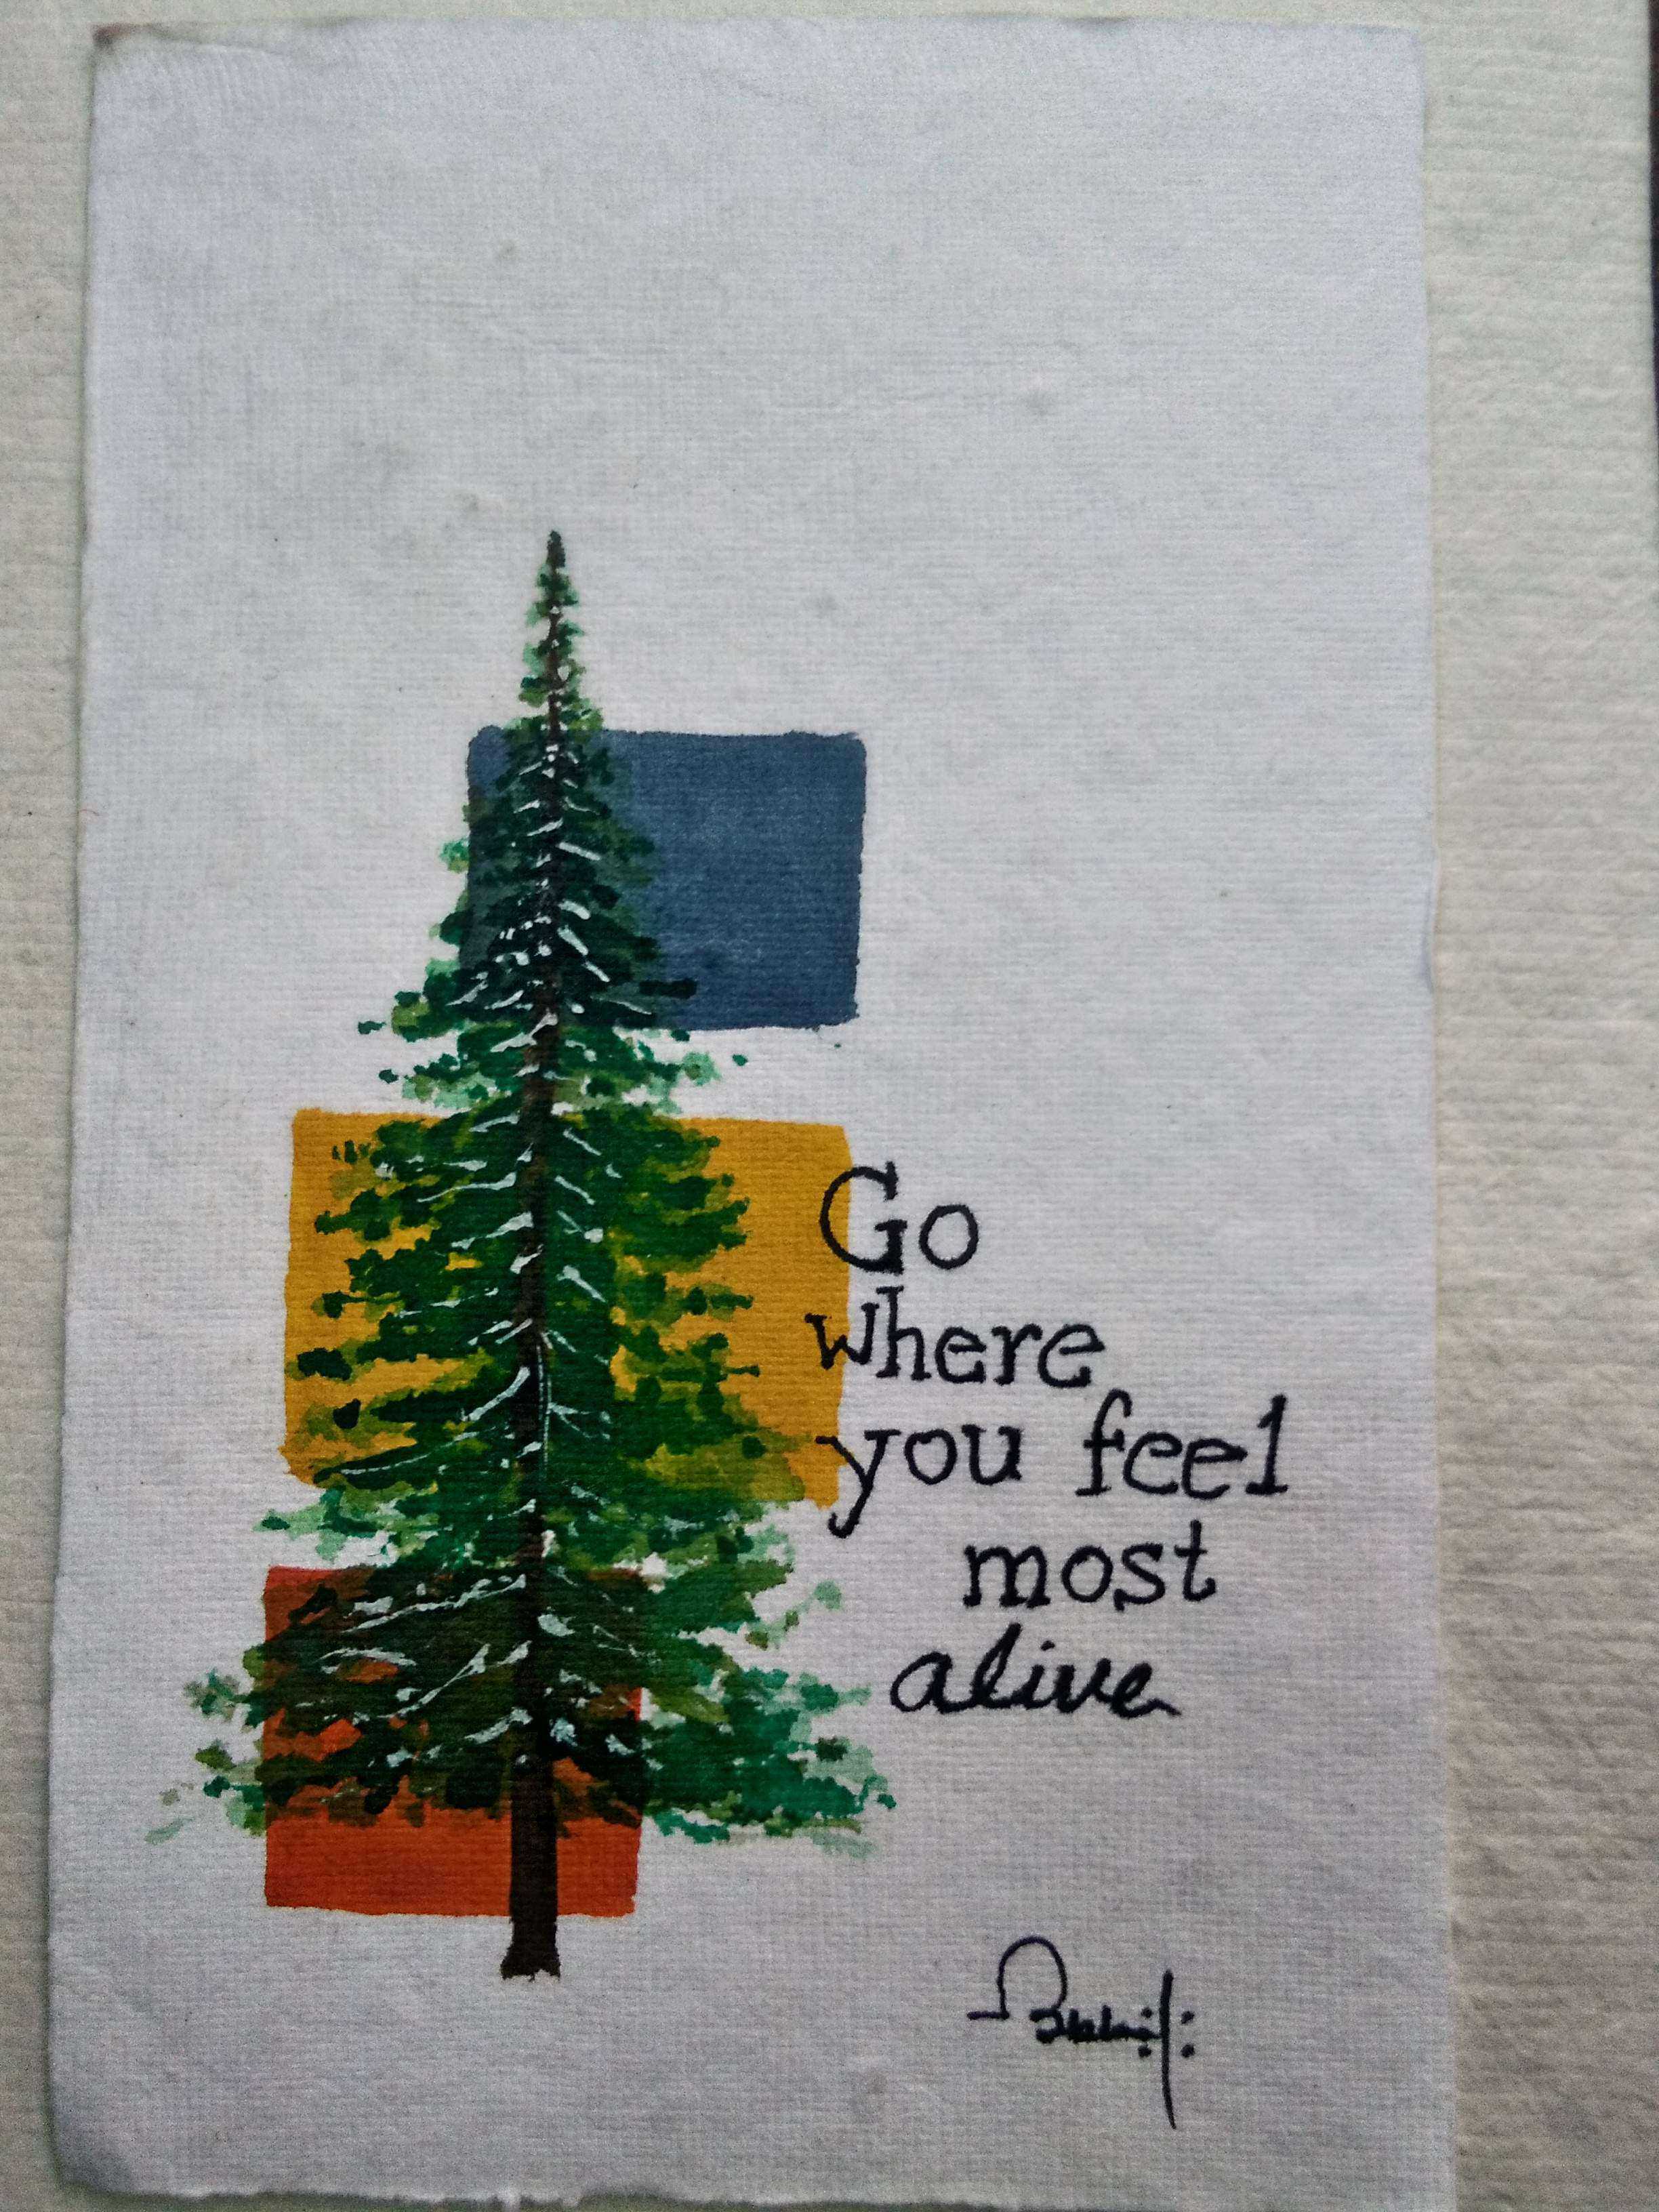 Go
where
you feel
most
alive